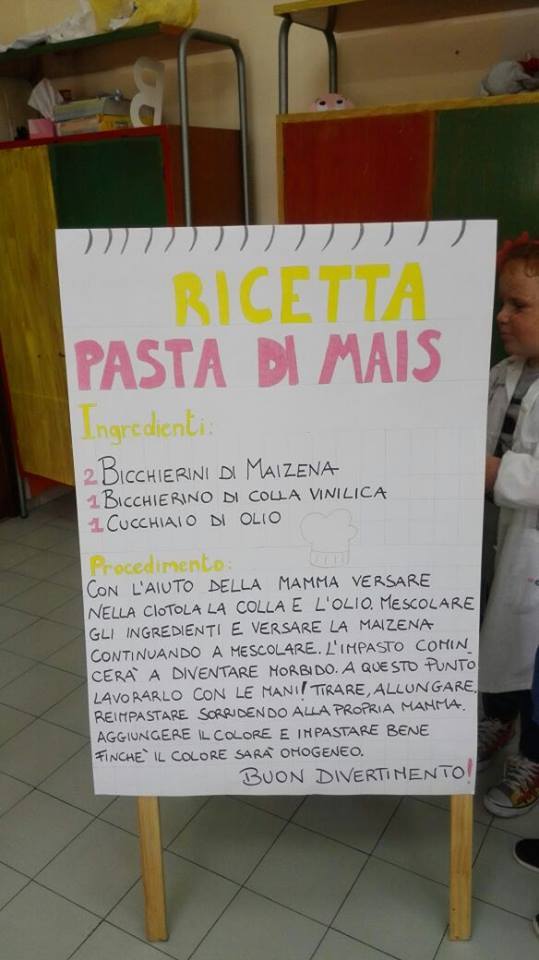 B
RICETTA
PASTA DI MAIS
Ingredienti:
2 BICCHIERINI DI MAIZENA
1 BICCHIERINO DI COLLA VINILICA
1 CUCCHIAIO DI OLIO
Procedimento:
CON L'AIUTO DELLA MAMMA VERSARE
NELLA CIOTOLA LA COLLA E L'OLIO. MESCOLARE
GLI INGREDIENTI E VERSARE LA MAIZENA
CONTINUANDO A MESCOLARE. L'IMPASTO COMIN-
CERÀ A DIVENTARE MORBIDO. A QUESTO PUNTO
LAVORARLO CON LE MANI! TIRARE, ALLUNGARE,
REIMPASTARE SORRIDENDO ALLA PROPRIA MAMMA.
AGGIUNGERE IL COLORE E IMPASTARE BENE
FINCHÈ IL COLORE SARÀ OMOGENEO.
BUON DIVERTIMENTO!